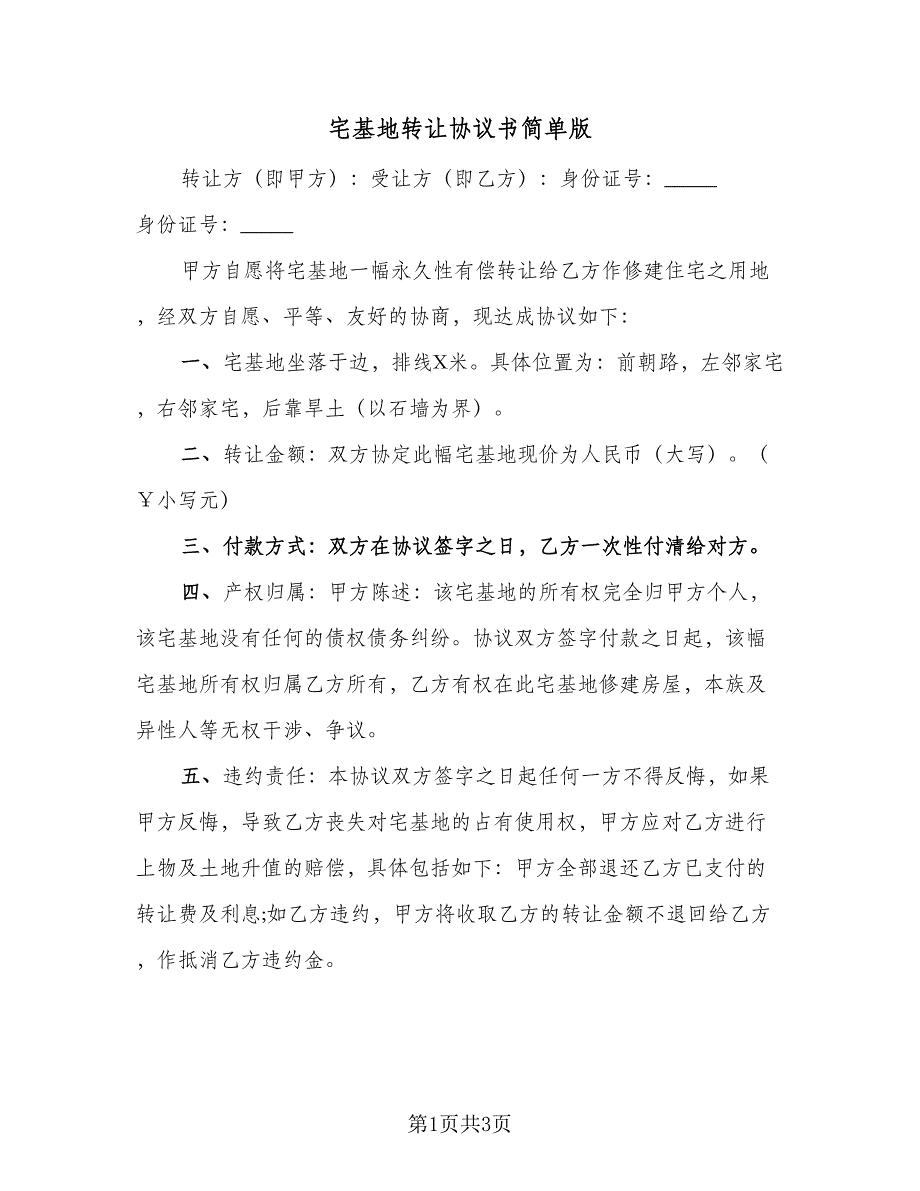 宅基地转让协议书简单版
转让方（即甲方）：受让方（即乙方）：身份证号：_____
身份证号：_____
甲方自愿将宅基地一幅永久性有偿转让给乙方作修建住宅之用地
，经双方自愿、平等、友好的协商，现达成协议如下：
一、宅基地坐落于边，排线X米。具体位置为：前朝路，左邻家宅
，右邻家宅，后靠旱土（以石墙为界）。
二、转让金额：双方协定此幅宅基地现价为人民币（大写）。（
￥小写元）
三、付款方式：双方在协议签字之日，乙方一次性付清给对方。
四、产权归属：甲方陈述：该宅基地的所有权完全归甲方个人，
该宅基地没有任何的债权债务纠纷。协议双方签字付款之日起，该幅
宅基地所有权归属乙方所有，乙方有权在此宅基地修建房屋，本族及
异性人等无权干涉、争议。
五、违约责任：本协议双方签字之日起任何一方不得反悔，如果
甲方反悔，导致乙方丧失对宅基地的占有使用权，甲方应对乙方进行
上物及土地升值的赔偿，具体包括如下：甲方全部退还乙方已支付的
转让费及利息;如乙方违约，甲方将收取乙方的转让金额不退回给乙方
，作抵消乙方违约金。
第1页共3页